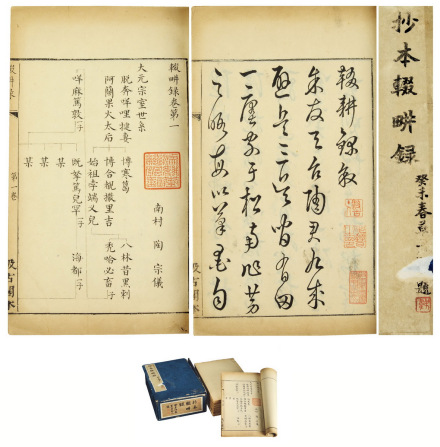 抄本輟畊録
癸未春
題
輟耕錄敘
余友天台陶君九成
避兵三吳間有田
一廛家于松南作勞
之暇每以筆墨自
輟畊録卷第一
南村 陶宗儀
大元宗室世系
脫奔咩哩揵妻 博寒葛 八林昔黑剌
阿蘭果火太后 博合覩撒里吉 禿哈必畜子
始祖孛端叉兒
咩麻篤敦子 既挐篤兒罕子 海都子
某
某
某
第一卷
汲古閣本